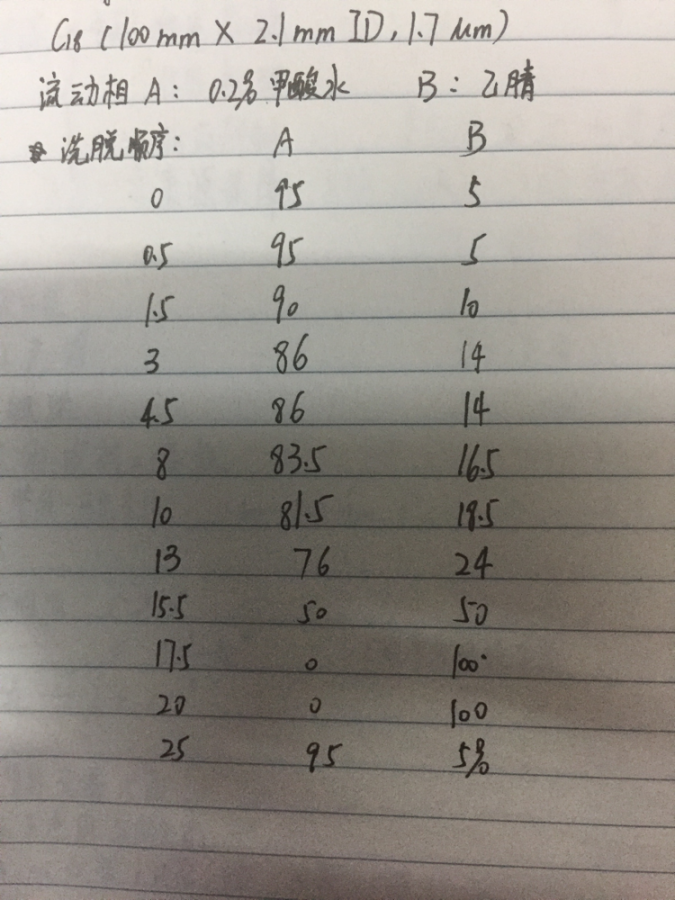 C18 (100mm × 2.1mm ID, 1.7 μm)
流动相 A: 0.2% 甲酸水 B: 乙腈
洗脱顺序: A B
0 95 5
0.5 95 5
1.5 90 10
3 86 14
4.5 86 14
8 83.5 16.5
10 81.5 18.5
13 76 24
15.5 50 50
17.5 0 100
20 0 100
25 95 5%